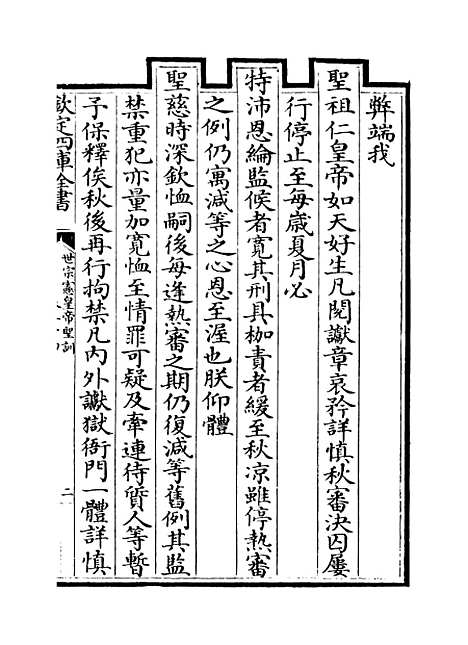 弊端我
聖祖仁皇帝如天好生凡閱讞章哀矜詳慎秋審決囚屢
行停止至每歲夏月必
特沛恩綸監候者寛其刑具枷責者緩至秋凉雖停熱審
之例仍寓減等之心恩至渥也朕仰體
聖慈時深欽恤嗣後每逢熱審之期仍復減等舊例其監
禁重犯亦量加寛恤至情罪可疑及牽連待質人等暫
子保釋俟秋後再行拘禁凡内外讞獄衙門一體詳慎
欽定四庫全書
世宗憲皇帝聖訓
二